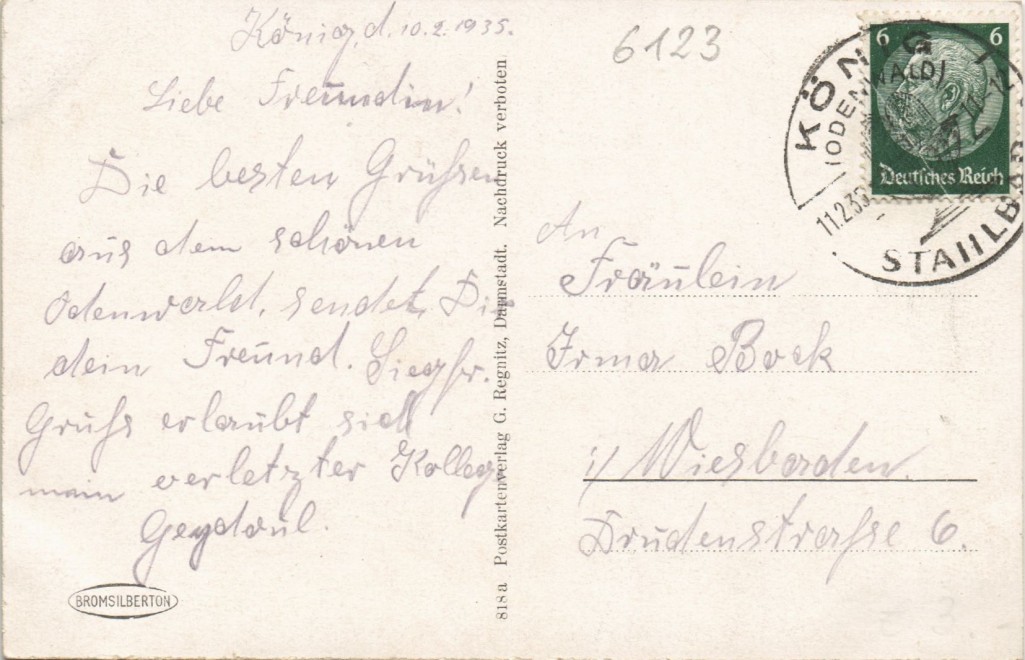 König, d. 10.2.1935.
Liebe Freundin!
Die besten Grüssen
aus dem schönen
Odenwald, sendet, Die
dein Freund. Siegfr.
Gruhs erlaubt sich
main verletzter Kolleg
BROMSILBERTON
818 a Postkartenverlag G. Regnitz, Darmstadt. Nachdruck verboten
6123
6 6
Deutsches Reich
KÖNIG
(ODENWALD)
11.2.35
STAHLBAD
An
Fräulein
Irma Bock
i/ Wiesbaden.
Drudenstrahse 6.